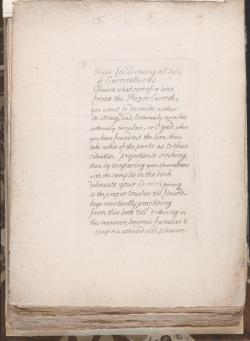 Rules for Drawing all sorts
of Carricaturas
Observe what sort of a line
forms the Phiz or Carrick,
you want to describe, wither
its straight lind, Externaly circular
internaly circular, or Ogeed, when
you have found out the line, then
take notice of the parts as to their
situation, projection & sinking,
then by comparing your observations
with the samples in the book
delineate your Carrick giving
it the proper touches till finish'd
constantly practising
from this book till drawing in
this manner becomes familur &
easy it is attended with pleasure